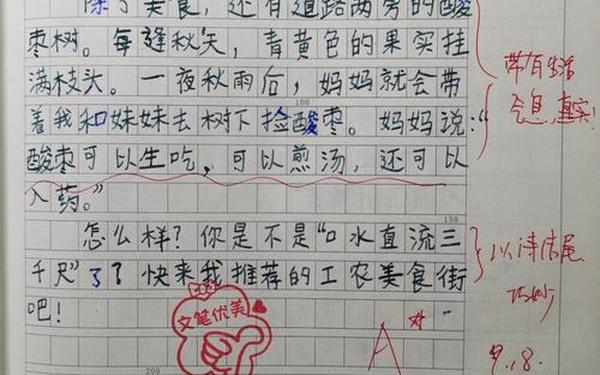 除了美食，还有道路两旁的酸
枣树。每逢秋天，青黄色的果实挂
满枝头。一夜秋雨后，妈妈就会带
着我和妹妹去树下捡酸枣。妈妈说：“
酸枣可以生吃，可以煎汤，还可以
入药。”
怎么样？你是不是“口水直流三
千尺”了？快来我推荐的工农美食街
吧！
带有生活
气息，真实！
以诗结尾
巧妙
文笔优美
A
9.18
100
150
200